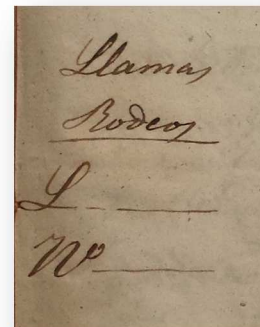 Llamas
Rodeos
L_ _ ____
Nº ____